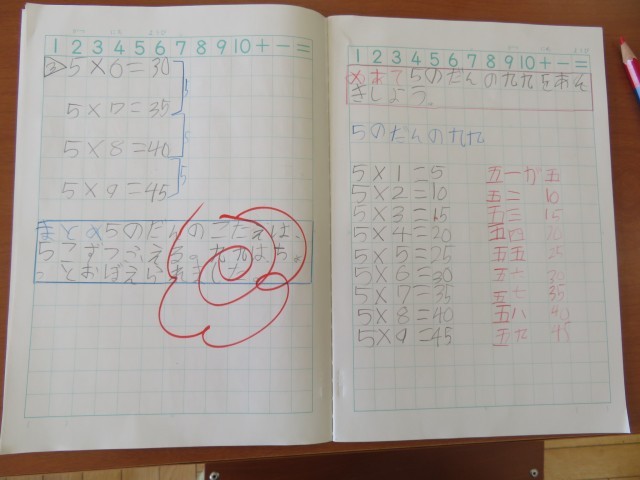 1 2 3 4 5 6 7 8 9 10 + − =
② 5×6=30
5×7=35
5×8=40
5×9=45
5
5
5
まとめ5のだんのこたえは、
5こずつふえる。九九は
とおぼえられました
1 2 3 4 5 6 7 8 9 10 + − =
めあて5のだんの九九をおぼ
きしよう。
5のだんの九九
5×1=5 五一が五
5×2=10 五二 10
5×3=15 五三 15
5×4=20 五四 20
5×5=25 五五 25
5×6=30 五六 30
5×7=35 五七 35
5×8=40 五八 40
5×9=45 五九 45